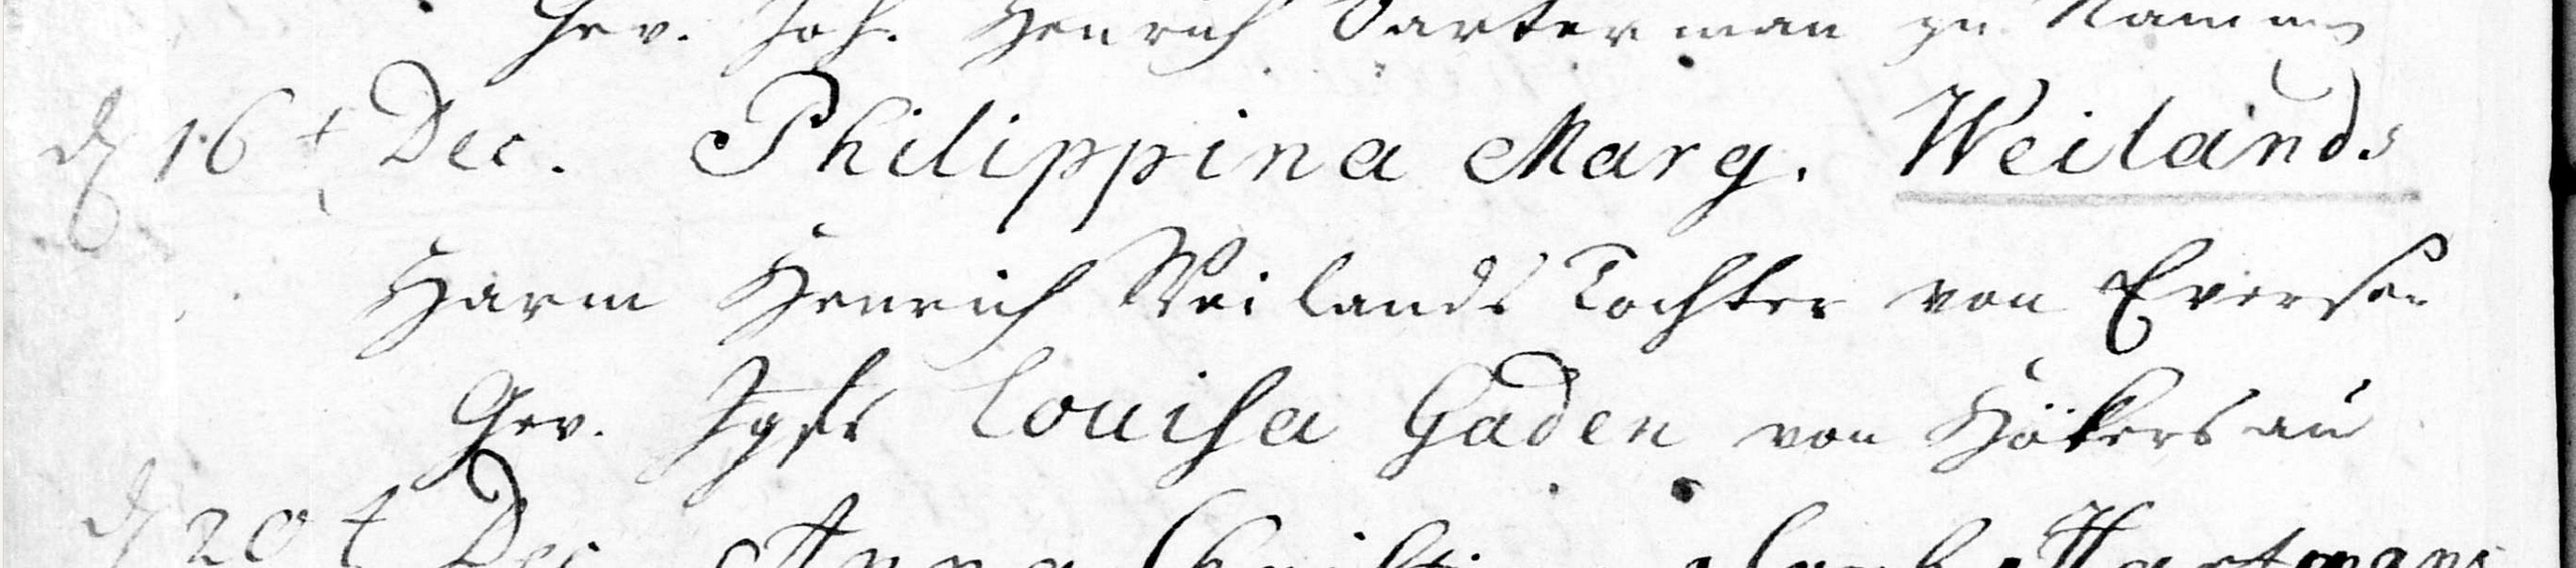 Gev. Joh. Henrich Varterman zu Namen
d 16t Dec. Philippina Marg. Weilands
Harm Henrich Weilands Tochter von Eversen
Gev. Jgfr Louisa Gaden von Hökersau
d 20t Dec. Anna Hartmans